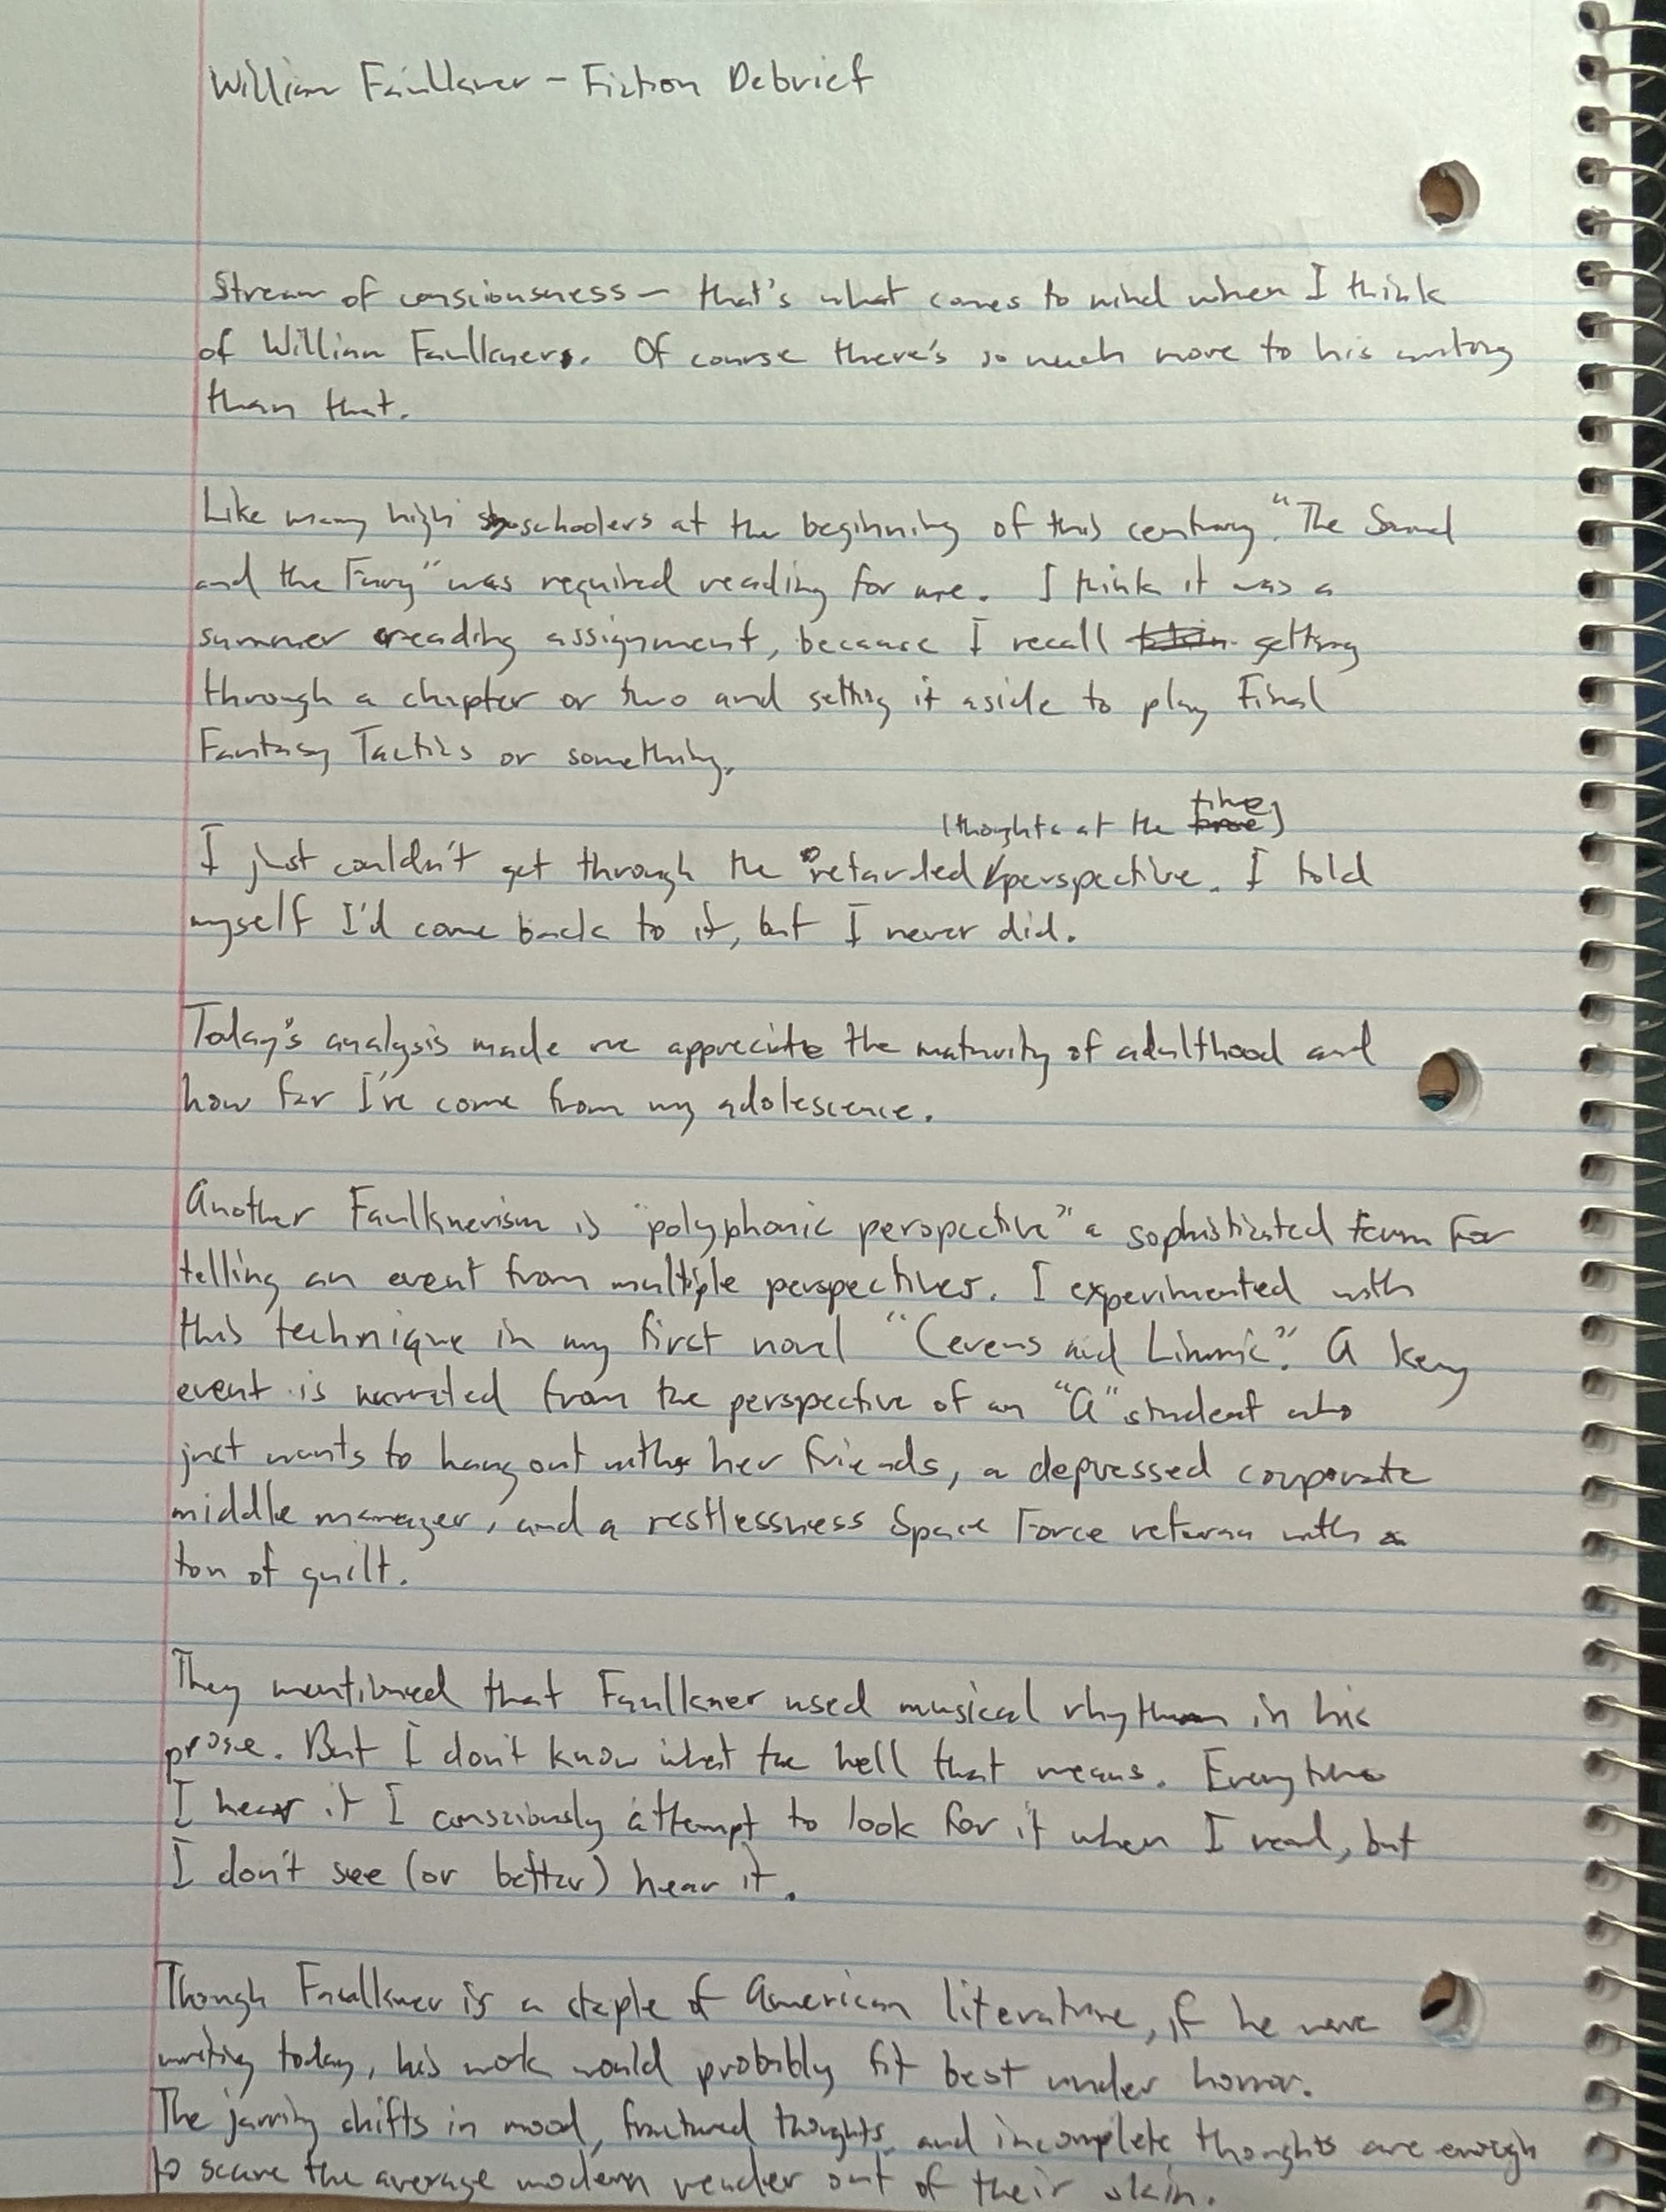 William Faulkner - Fiction Debrief
Stream of consciousness - that's what comes to mind when I think
of William Faulkner. Of course there's so much more to his writing
than that.
Like many high schoolers at the beginning of this century "The Sound
and the Fury" was required reading for me. I think it was a
summer reading assignment, because I recall getting
through a chapter or two and setting it aside to play Final
Fantasy Tactics or something.
(thoughts at the time)
I just couldn't get through the retarded perspective. I told
myself I'd come back to it, but I never did.
Today's analysis made me appreciate the maturity of adulthood and
how far I've come from my adolescence.
Another Faulknerism is "polyphonic perspective" a sophisticated term for
telling an event from multiple perspectives. I experimented with
this technique in my first novel "Cevens and Linmic". A key
event is narrated from the perspective of an "A" student who
just wants to hang out with her friends, a depressed corporate
middle manager, and a restlessness Space Force veteran with a
ton of guilt.
They mentioned that Faulkner used musical rhythm in his
prose. But I don't know what the hell that means. Every time
I hear it I consciously attempt to look for it when I read, but
I don't see (or better) hear it.
Though Faulkner is a staple of American literature, if he were
writing today, his work would probably fit best under horror.
The jarring shifts in mood, fractured thoughts, and incomplete thoughts are enough
to scare the average modern reader out of their skin.